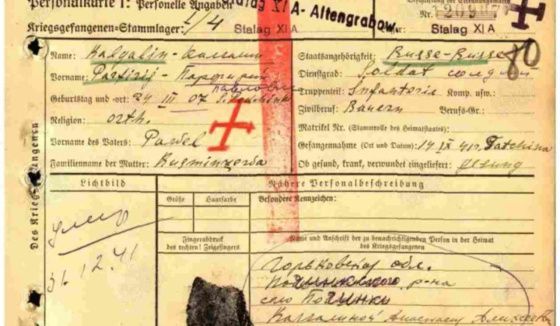 Personalkarte I: Personelle Angaben
Kriegsgefangenen-Stammlager: I/4 Stalag XI A
Stalag XI A - Altengrabow.
Des Kriegsgefangenen
Name:
Vorname:
Павлович
Geburtstag und -ort: 24 III 07
Religion: orth.
Vorname des Vaters: Pawel
Familienname der Mutter:
Staatsangehörigkeit: Russe-Russe
80
Dienstgrad: Soldat солдат
Truppenteil: Infanterie Komp. usw.:
Zivilberuf: Bauern Berufs-Gr.:
Matrikel Nr. (Stammrolle des Heimatstaates):
Gefangennahme (Ort und Datum): 17 IX 41 Gatchina
Ob gesund, krank, verwundet eingeliefert: gesund
Lichtbild
умер
31.12.41
Nähere Personalbeschreibung
Größe Haarfarbe Besondere Kennzeichen:
Fingerabdruck
des rechten! Zeigefingers
Name und Anschrift der zu benachrichtigenden Person in der Heimat
des Kriegsgefangenen
Горьковская обл.
р-на
село Починки